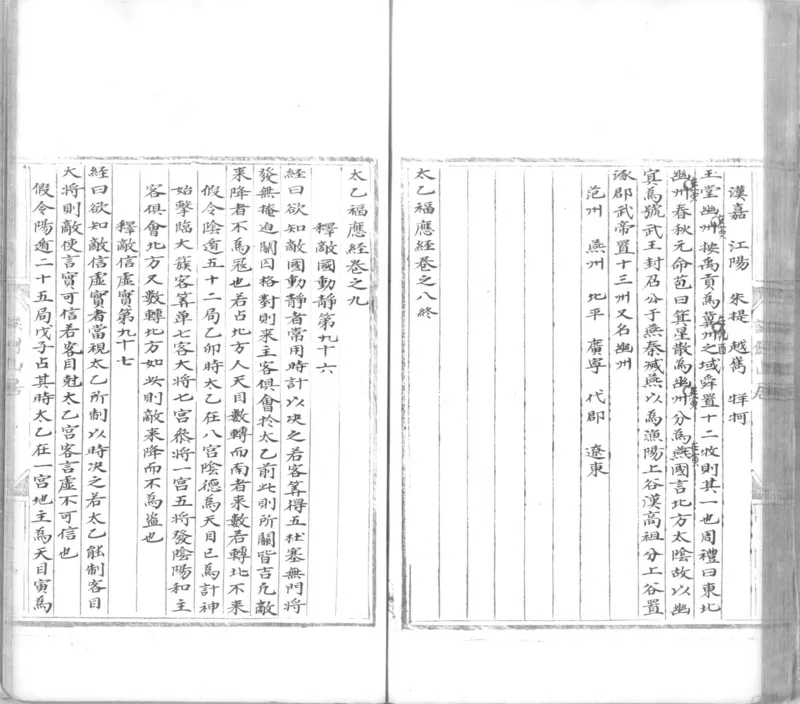 漢嘉 江陽 朱提 越嶲 牂牁
玉堂幽州按禹貢為冀州之域舜置十二牧則其一也周禮曰東北
幽州春秋元命苞曰箕星散為幽州分為燕國言北方太陰故以幽
冥為號武王封召公于燕秦滅燕以為漁陽上谷漢高祖分上谷置
涿郡武帝置十三州又名幽州
范州 燕州 北平 廣寧 代郡 遼東
太乙福應經卷之八終
太乙福應經卷之九
釋敵國動靜第九十六
經曰欲知敵國動靜者常用時計以決之若客筭得五杜塞無門將
發無掩迫關囚格對則来主客俱會於太乙前此則所關皆吉凡敵
来降者不為冦也若占北方人天目數轉而南者来數若轉北不来
假令陰遁五十二局乙卯時太乙在八宮陰德為天目巳為計神
始擊臨大簇客筭單七客大將七宮叅將一宮五將發陰陽和主
客俱會北方又數轉北方如此則敵来降而不為盜也
釋敵信虛實第九十七
經曰欲知敵信虛實者當視太乙所制以時決之若太乙能制客目
大將則敵使言實可信若客目尅太乙宮客言虛不可信也
假令陽遁二十五局戊子占其時太乙在一宮地主為天目寅為